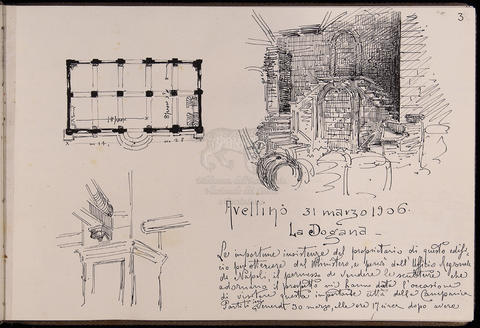 3
Avellino 31 marzo 1906.
La Dogana
Le importune insistenze del proprietario di questo edifi-
cio per ottenere dal Ministero, e perciò dall'Ufficio Regionale
di Napoli, il permesso di vendere le sculture che
adornano il prospetto mi hanno data l'occasione
di visitare questa importante città della Campania
Partito Venerdì 30 marzo, alle ore 17, circa dopo avere